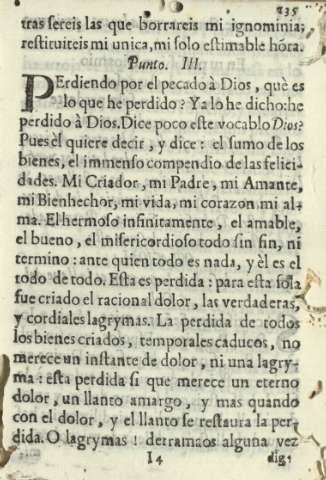 235
tras sereis las que borrareis mi ignominia;
restituireis mi unica, mi solo estimable hõra.
Punto. III.
PErdiendo por el pecado à Dios, què es
lo que he perdido? Ya lo he dicho: he
perdido à Dios. Dice poco este vocablo Dios?
Pues èl quiere decir, y dice: el sumo de los
bienes, el immenso compendio de las felici-
dades. Mi Criador, mi Padre, mi Amante,
mi Bienhechor, mi vida, mi corazon mi al-
ma. El hermoso infinitamente, el amable,
el bueno, el misericordioso todo sin fin, ni
termino: ante quien todo es nada, y èl es el
todo de todo. Esta es perdida: para esta sola
fue criado el racional dolor, las verdaderas,
y cordiales lagrymas. La perdida de todos
los bienes criados, temporales caducos, no
merece un instante de dolor, ni una lagry-
ma: esta perdida si que merece un eterno
dolor, un llanto amargo, y mas quando
con el dolor, y el llanto se restaura la per-
dida. O lagrymas! derramaos alguna vez
I4
dig-